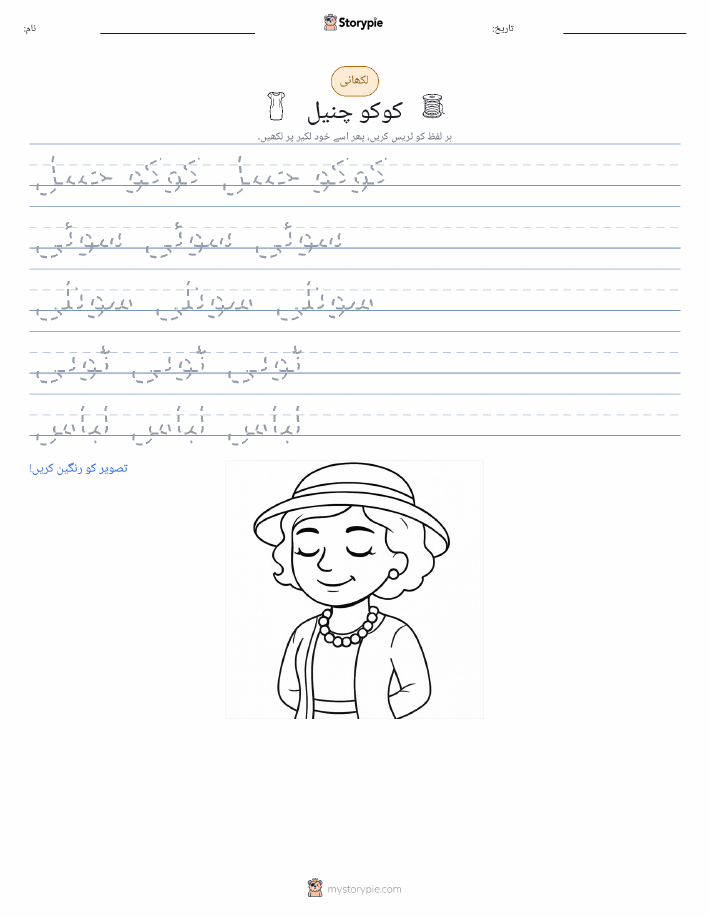 تاریخ:
Storypie
نام:
لکھائی
کوکو چنیل
ہر لفظ کو ٹریس کریں، پھر اسے خود لکیر پر لکھیں۔
کوکو چنیل کوکو چنیل
سوئی سوئی سوئی
سوتلی سوتلی سوتلی
ٹوپی ٹوپی ٹوپی
لباس لباس لباس
تصویر کو رنگین کریں!
mystorypie.com